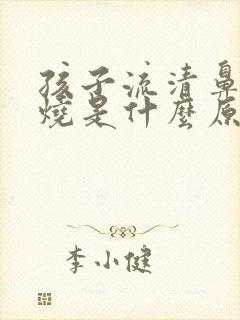 孩子流清鼻
燒是什麼原
李小健